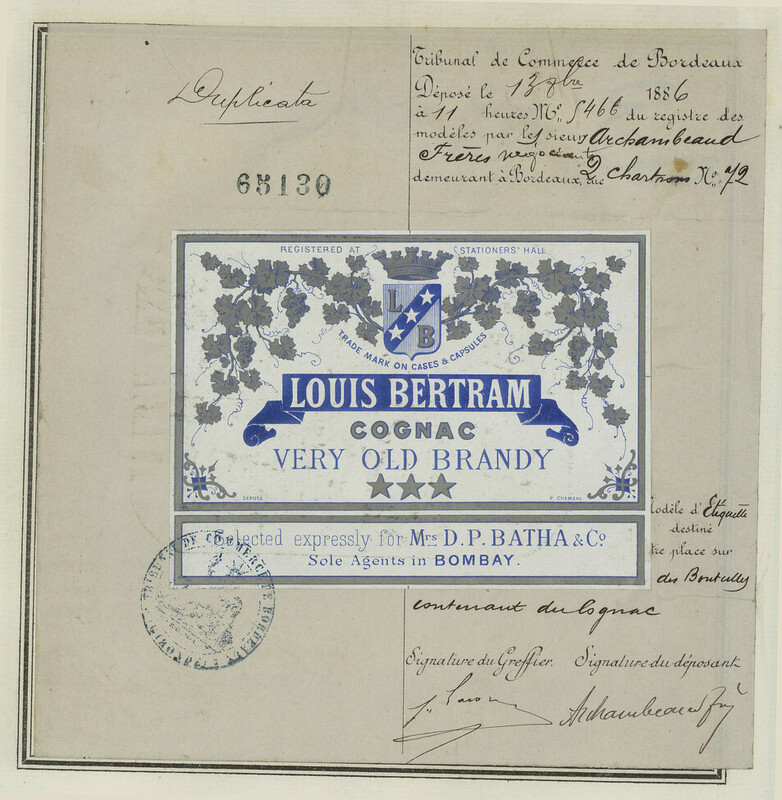 Duplicata
65130
Tribunal de Commerce de Bordeaux
Déposé le 13 8bre 1886
à 11 heures M. No. 5466 du registre des
modèles par les sieurs Archambeaud
Frères négociants
demeurant à Bordeaux, rue Chartrons No. 72
REGISTERED AT STATIONERS' HALL
L B
TRADE MARK ON CASES & CAPSULES
LOUIS BERTRAM
COGNAC
VERY OLD BRANDY
DÉPOSÉ
F. CHAMEAU
Selected expressly for Mrs D. P. BATHA & Co
Sole Agents in BOMBAY.
modèle d'Etiquette
destiné
tre place sur
des Bouteilles
contenant du Cognac
TRIBUNAL DE COMMERCE DE BORDEAUX
Signature du Greffier. Signature du déposant
Archambeaud